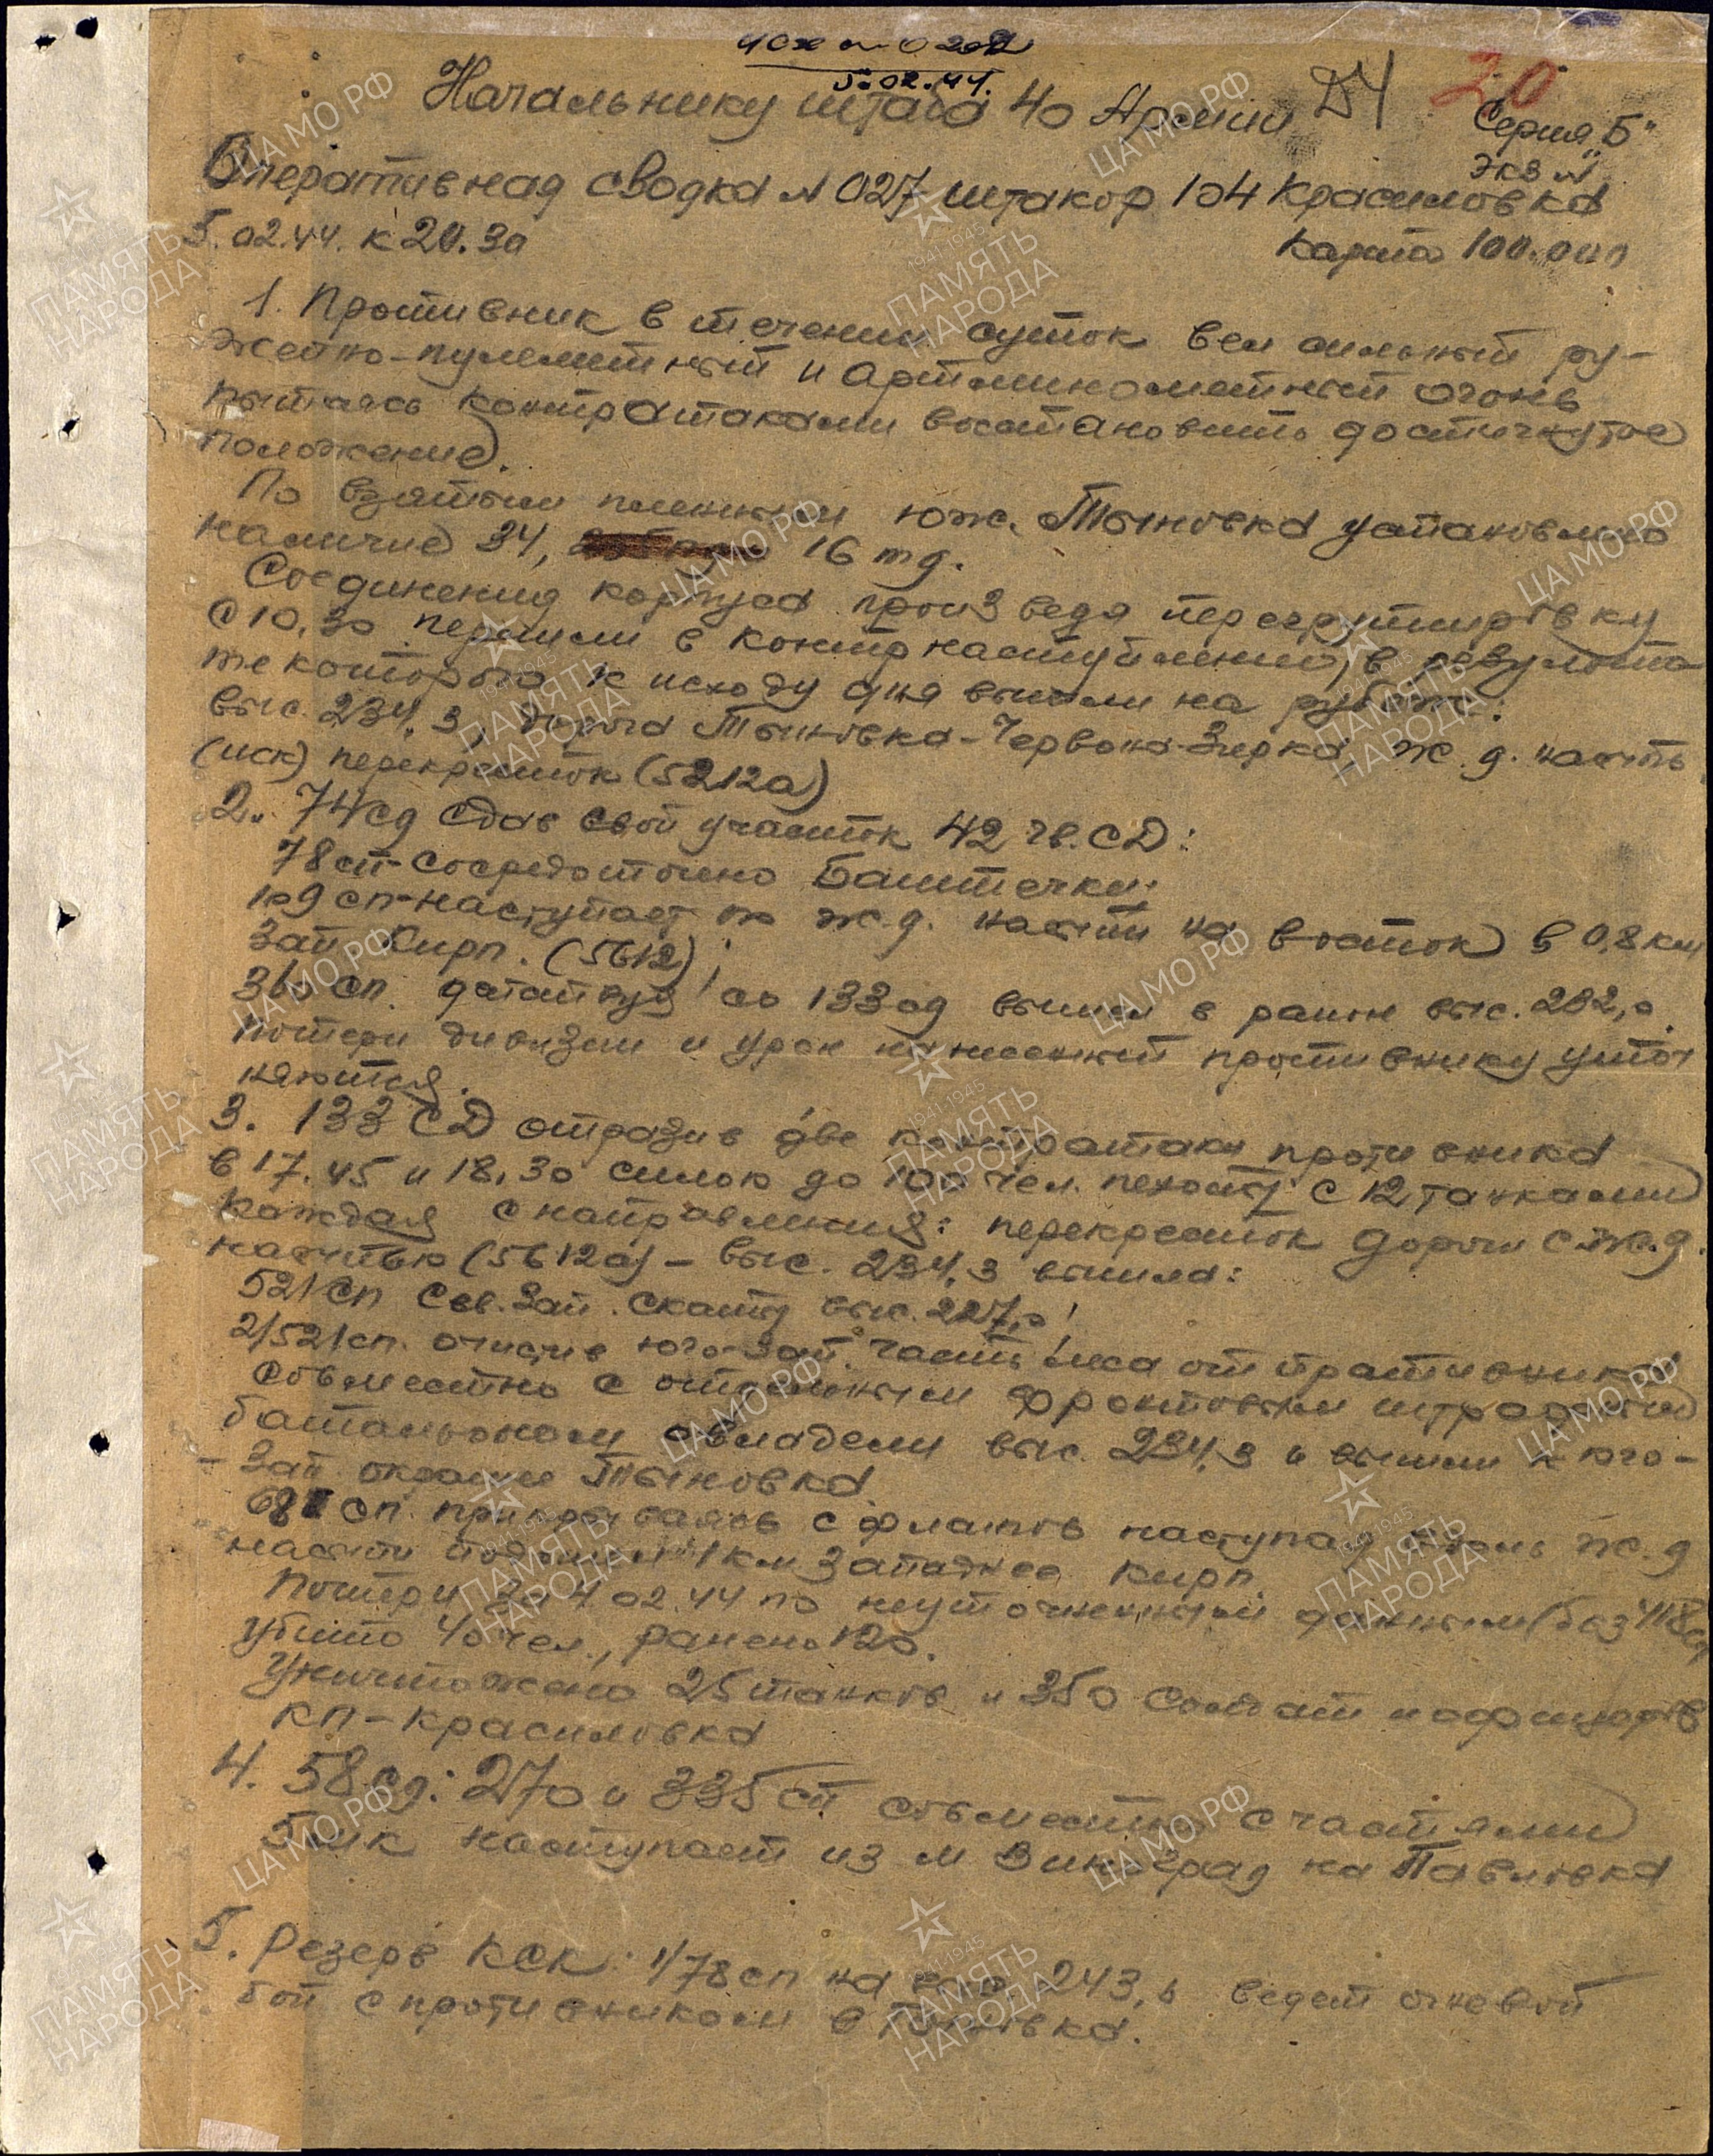 5.02.44.
20
Начальнику штаба 40 Армии
Серия „Б"
Экз №
Оперативная сводка № 027 штакор 104 Красиловка
5.02.44. к 20.30
Карта 100.000
1. Противник в течении суток вел сильный ру-
жейно-пулеметный и артминометный огонь
пытаясь контратаками востановить достигнутое
положение.
По взятым пленным юж. Тыновка установлено
наличие 34, 16 тд.
Соединения корпуса произведя перегрупировку
с 10.30 перешли в контрнаступление, в результа-
те которого к исходу дня вышли на рубеж:
выс. 234,3, дорога Тыновка-Червона Зирка, ж.д. насыпь
(иск) перекресток (5212а)
2. 74 сд сдав свой участок 42 гв. СД:
78 сп - сосредоточено Баштечки;
109 сп - наступает по ж.д. насыпи на восток в 0,8 км
зап Кирп. (5612);
360 сп. 133 сд вышел в район выс. 232,0
Потери дивизии и урон нанесенный противнику уточ
няются.
3. 133 СД отразив две контратаки противника
в 17.45 и 18.30 силою до 100 чел. пехоты с 12 танками
каждая с направления: перекресток дороги с ж.д.
насыпью (5612а) - выс. 234,3 вышла:
521 сп Сев. Зап. скаты выс. 227,0;
2/521 сп. очистив юго-зап. часть леса от противника
совместно с отдельным фронтовым штрафным
батальоном овладели выс. 234,3 и вышли к юго-
- зап окраине Тыновка
681 сп. прикрываясь с флангов наступая вдоль ж.д
насыпи 1 км западнее Кирп.
Потери за 4.02.44 по неуточненным данным (без
убито 40 чел., ранено 120.
Уничтожено 25 танков и 350 солдат и офицеров
КП - Красиловка
4. 58 сд: 270 и 335 сп совместно с частями
5 мк наступает из м Виноград на Павловка
5. Резерв КСК: 1/78 сп на выс. 243, ведет огневой
бой с противником в Тыновка.
ЦА МО РФ
1941-1945
ПАМЯТЬ
НАРОДА